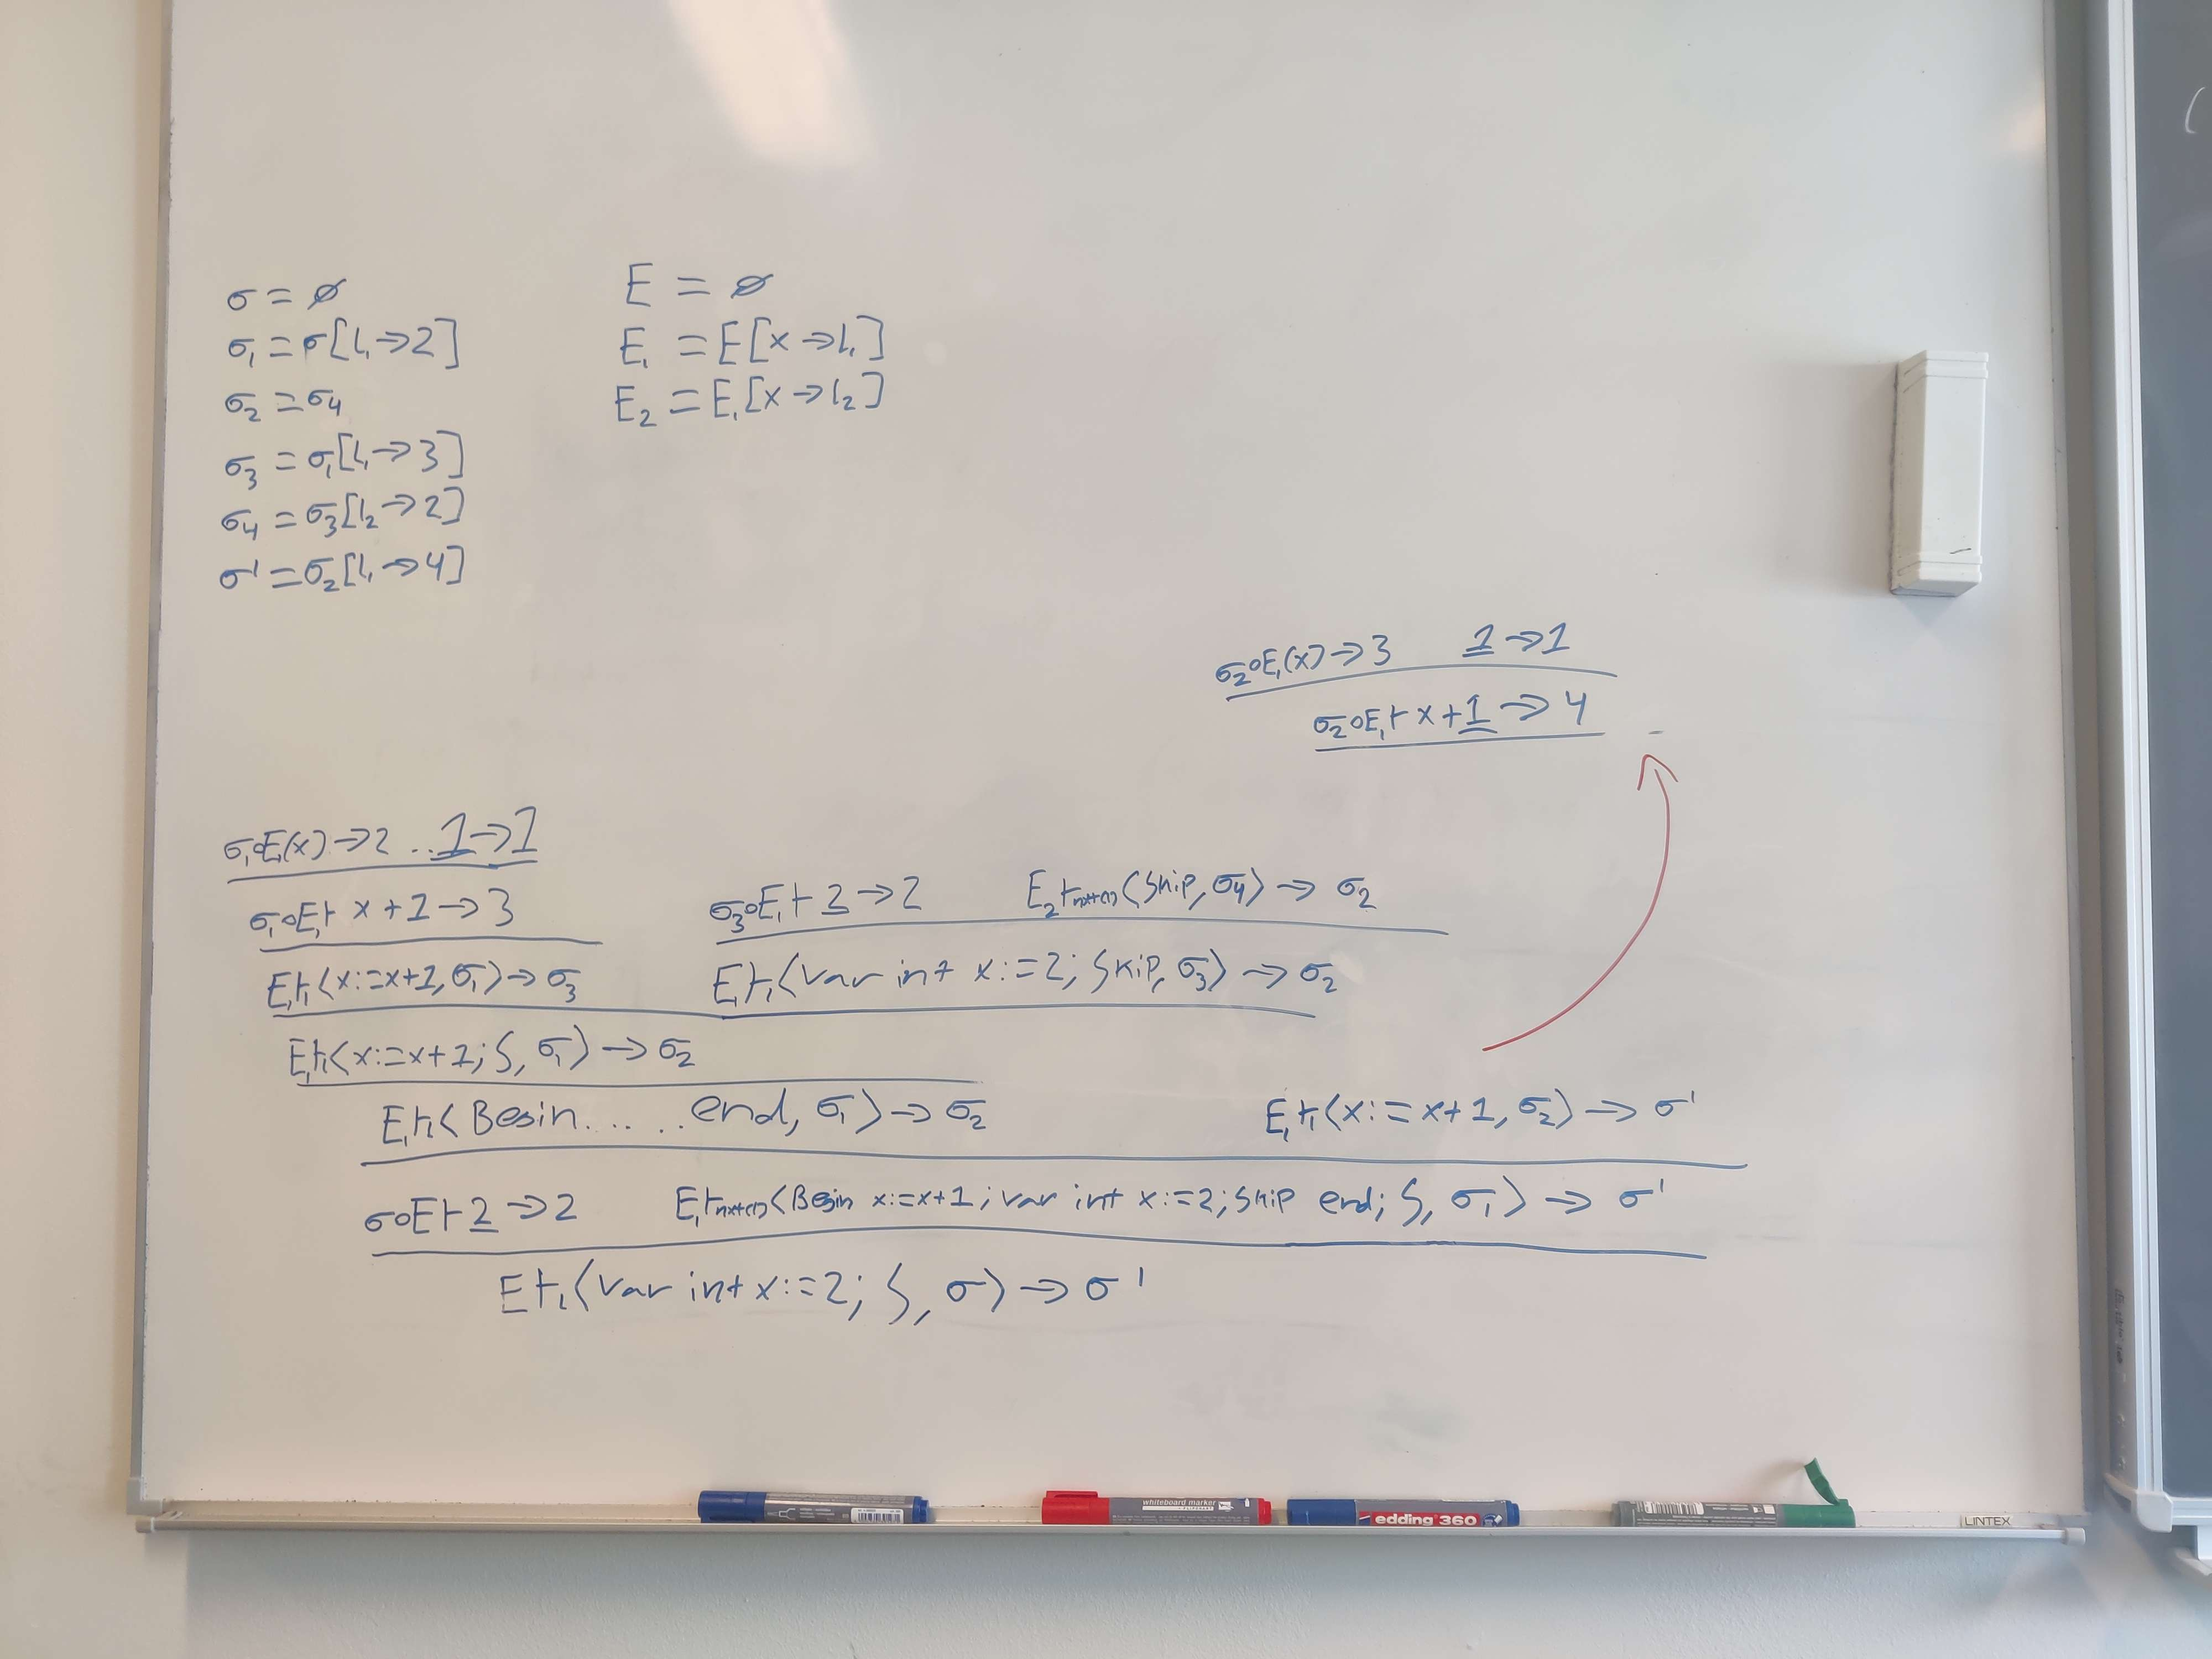 σ = ∅
σ₁ = σ[l₁→2]
σ₂ = σ₄
σ₃ = σ₁[l₁→3]
σ₄ = σ₃[l₂→2]
σ' = σ₂[l₁→4]
E = ∅
E₁ = E[x→l₁]
E₂ = E₁[x→l₂]
σ₂∘E₁(x)→3 1→1
σ₂∘E₁⊢x+1→4
σ₁∘E₁(x)→2 ..1→1
σ₁∘E₁⊢x+1→3
σ₃∘E₁⊢2→2 E₂⊢next(l)⟨Skip,σ₄⟩→σ₂
E₁⊢l⟨x:=x+1,σ₁⟩→σ₃ E₁⊢l⟨var int x:=2; Skip,σ₃⟩→σ₂
E₁⊢l⟨x:=x+1;S,σ₁⟩→σ₂
E₁⊢l⟨Begin.....end,σ₁⟩→σ₂ E₁⊢l⟨x:=x+1,σ₂⟩→σ'
σ∘E⊢2→2 E₁⊢next(l)⟨Begin x:=x+1; var int x:=2; Skip end; S,σ₁⟩→σ'
E⊢l⟨var int x:=2; S,σ⟩→σ'
whiteboard marker
edding 360
LINTEX